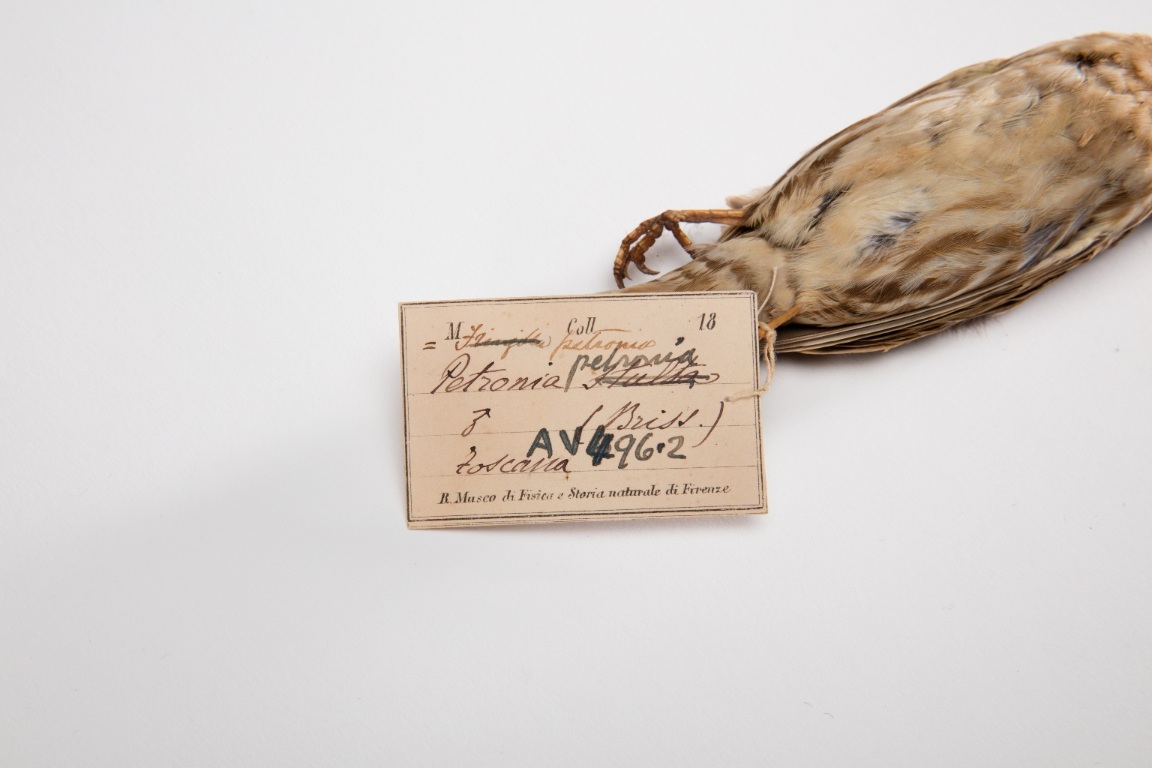 M Coll 18
= Fringilla petronia
petronia
Petronia stulta
♂ (Briss.)
AV496.2
Toscana
R. Museo di Fisica e Storia naturale di Firenze